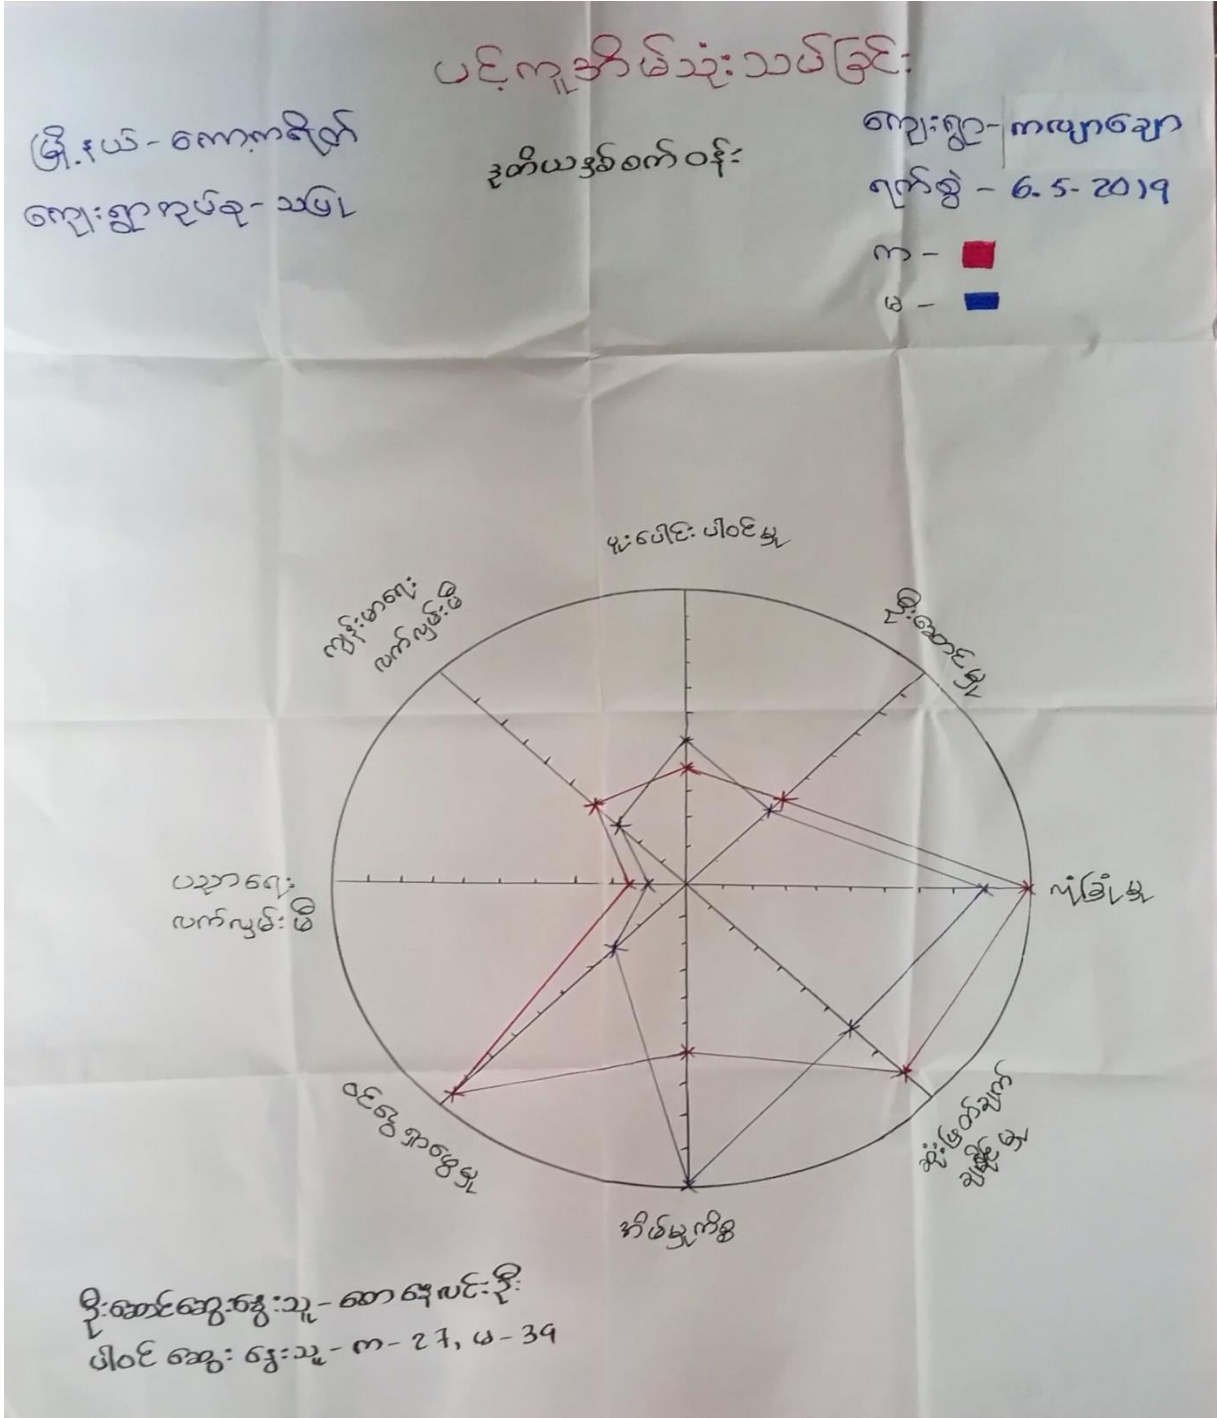 ပင့်ကူအိမ်သုံးသပ်ခြင်း
မြို့နယ် - ကော့ကရိတ်
ကျေးရွာအုပ်စု - သမြ
ဒုတိယနှစ်စက်ဝန်း
ကျေးရွာ - ကလျာချော
ရက်စွဲ - 6.5-2019
က -
မ -
ပူးပေါင်းပါဝင်မှု
ဦးဆောင်မှု
လုံခြုံမှု
ဆုံးဖြတ်ချက်
ချနိုင်မှု
အိမ်မှုကိစ္စ
ဝင်ငွေရှာဖွေမှု
ပညာရေး
လက်လှမ်းမီ
ကျန်းမာရေး
လက်လှမ်းမီ
ဦးဆောင်ဆွေးနွေးသူ - စောနေလင်းဦး
ပါဝင်ဆွေးနွေးသူ - က - 27, မ - 39